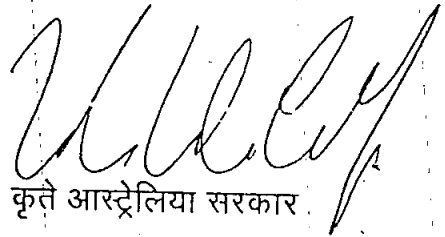 कृते आस्ट्रेलिया सरकार